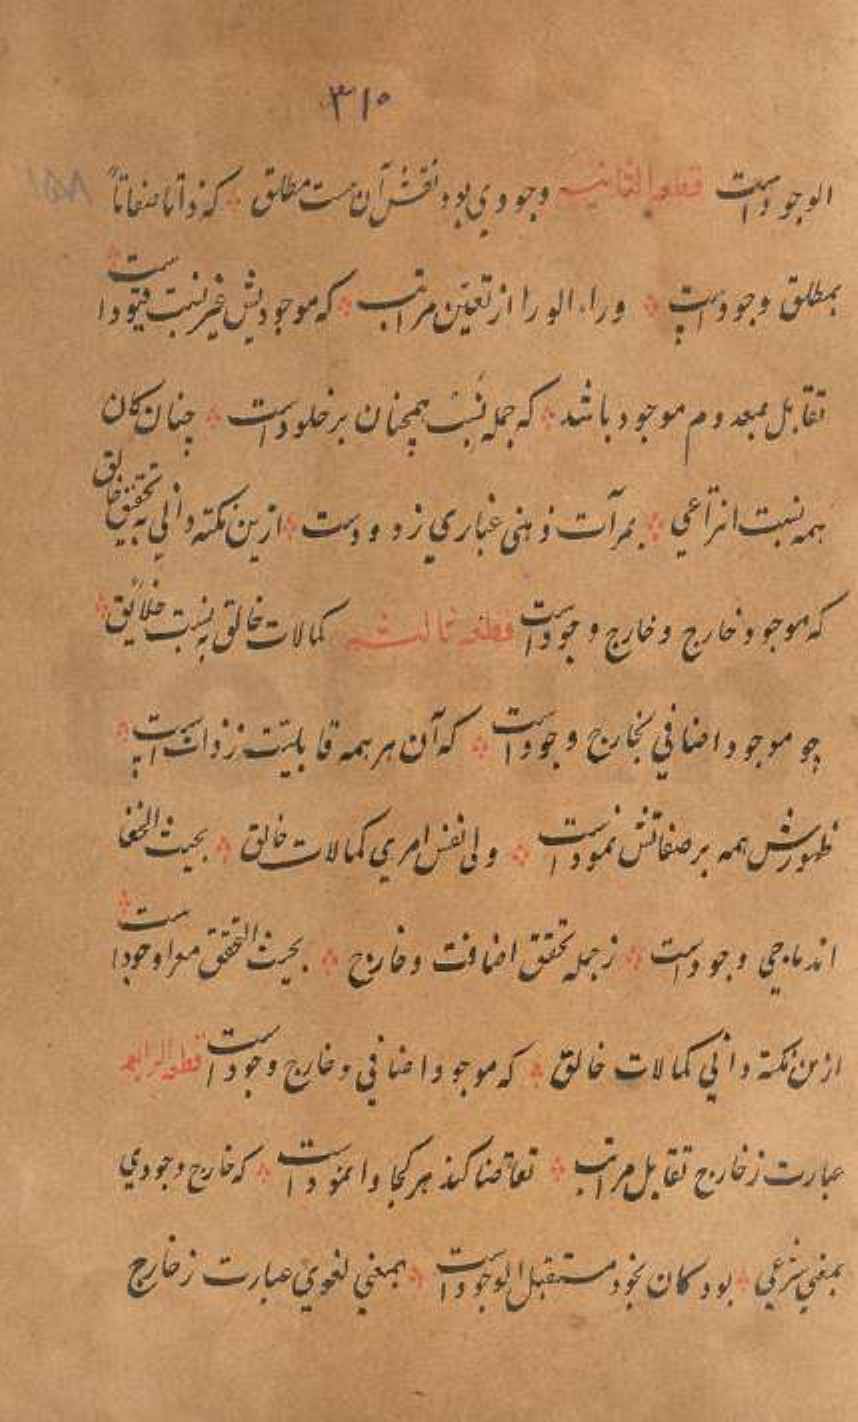 ٣١٠
١٥٨
الوجود است قطعه الثانیه وجودی بود نفس آن هست مطلق که ذاتا صفاتاً
بمطلق وجود است وراء الورا از تعین مراتب که موجودیش غیر نسبت قیود است
تقابل بمعدوم موجود باشد که جمله نسب همچنان بر خلود است چنان کان
همه نسبت انتزاعی بمرآت ذهنی غباری زدودست ازین نکته دانی به تحقیق خالق
که موجود خارج و خارج وجود است قطعه ثالثه کمالات خالق به نسبت خلائق
چو موجود اضافی بخارج وجود است که آن هر همه قابلیت ز ذات است
ظهورش همه بر صفاتش نمود است ولی نفس امری کمالات خالق بحیث الخفا
اندماجی وجود است ز جمله تحقق اضافت و خارج بحیث التحقق معرا وجود است
ازین نکته دانی کمالات خالق که موجود اضافی و خارج وجود است قطعه الرابعه
عبارت ز خارج تقابل مراتب تقاضا کند هر کجا وانمود است که خارج وجودی
بمعنی شرعی بود کان بخود مستقبل الوجود است بمعنی لغوی عبارت ز خارج